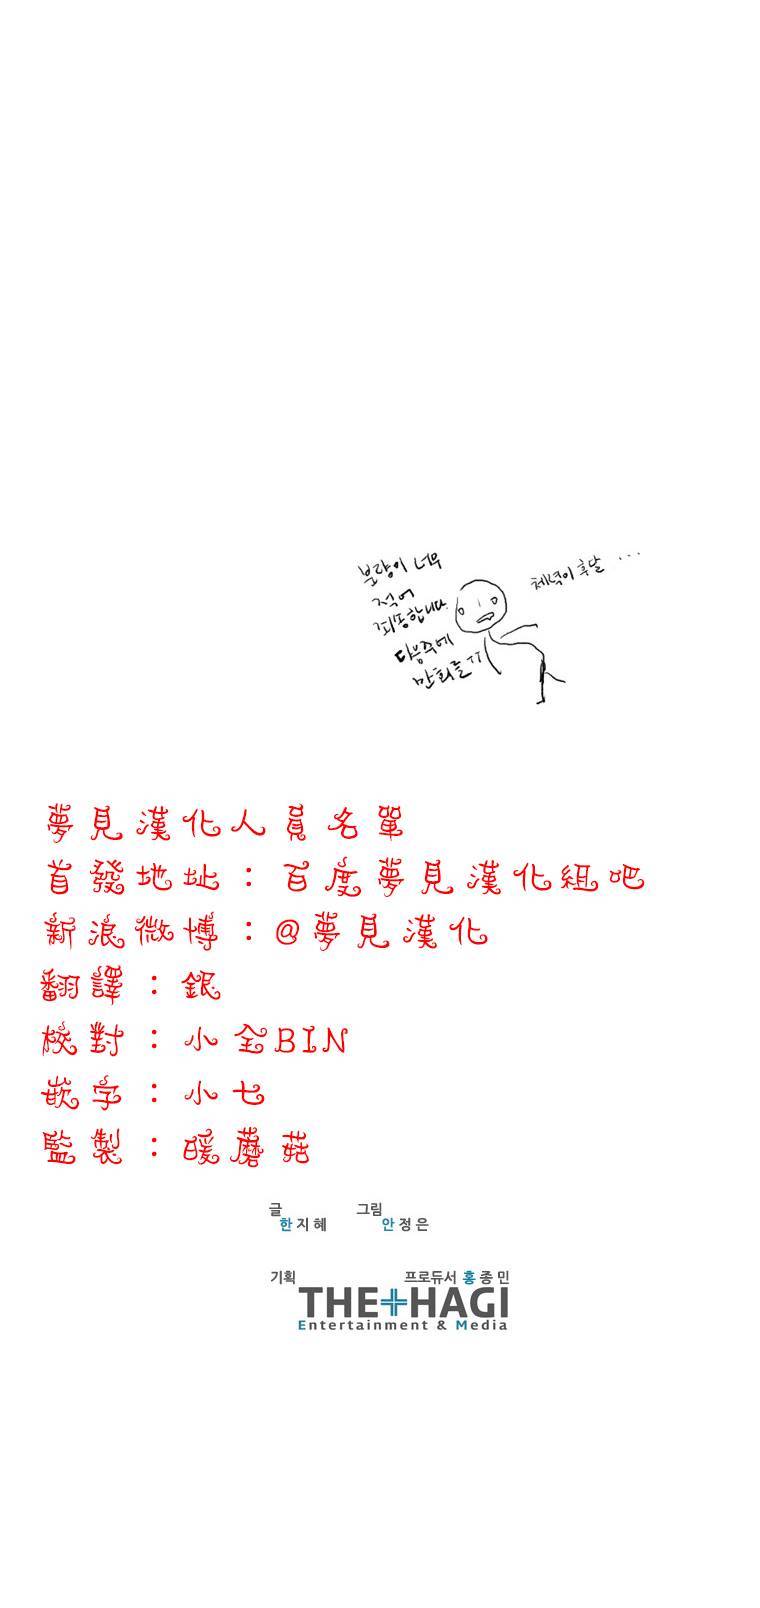 분량이 너무
적어
죄송합니다.
다음주에
만회를 ㅠ
체력이 후달 ...
夢見漢化人員名單
首發地址：百度夢見漢化組吧
新浪微博：@夢見漢化
翻譯：銀
校對：小全BIN
嵌字：小七
監製：暖蘑菇
글 그림
한지혜 안정은
기획 프로듀서 홍종민
THE+HAGI
Entertainment & Media